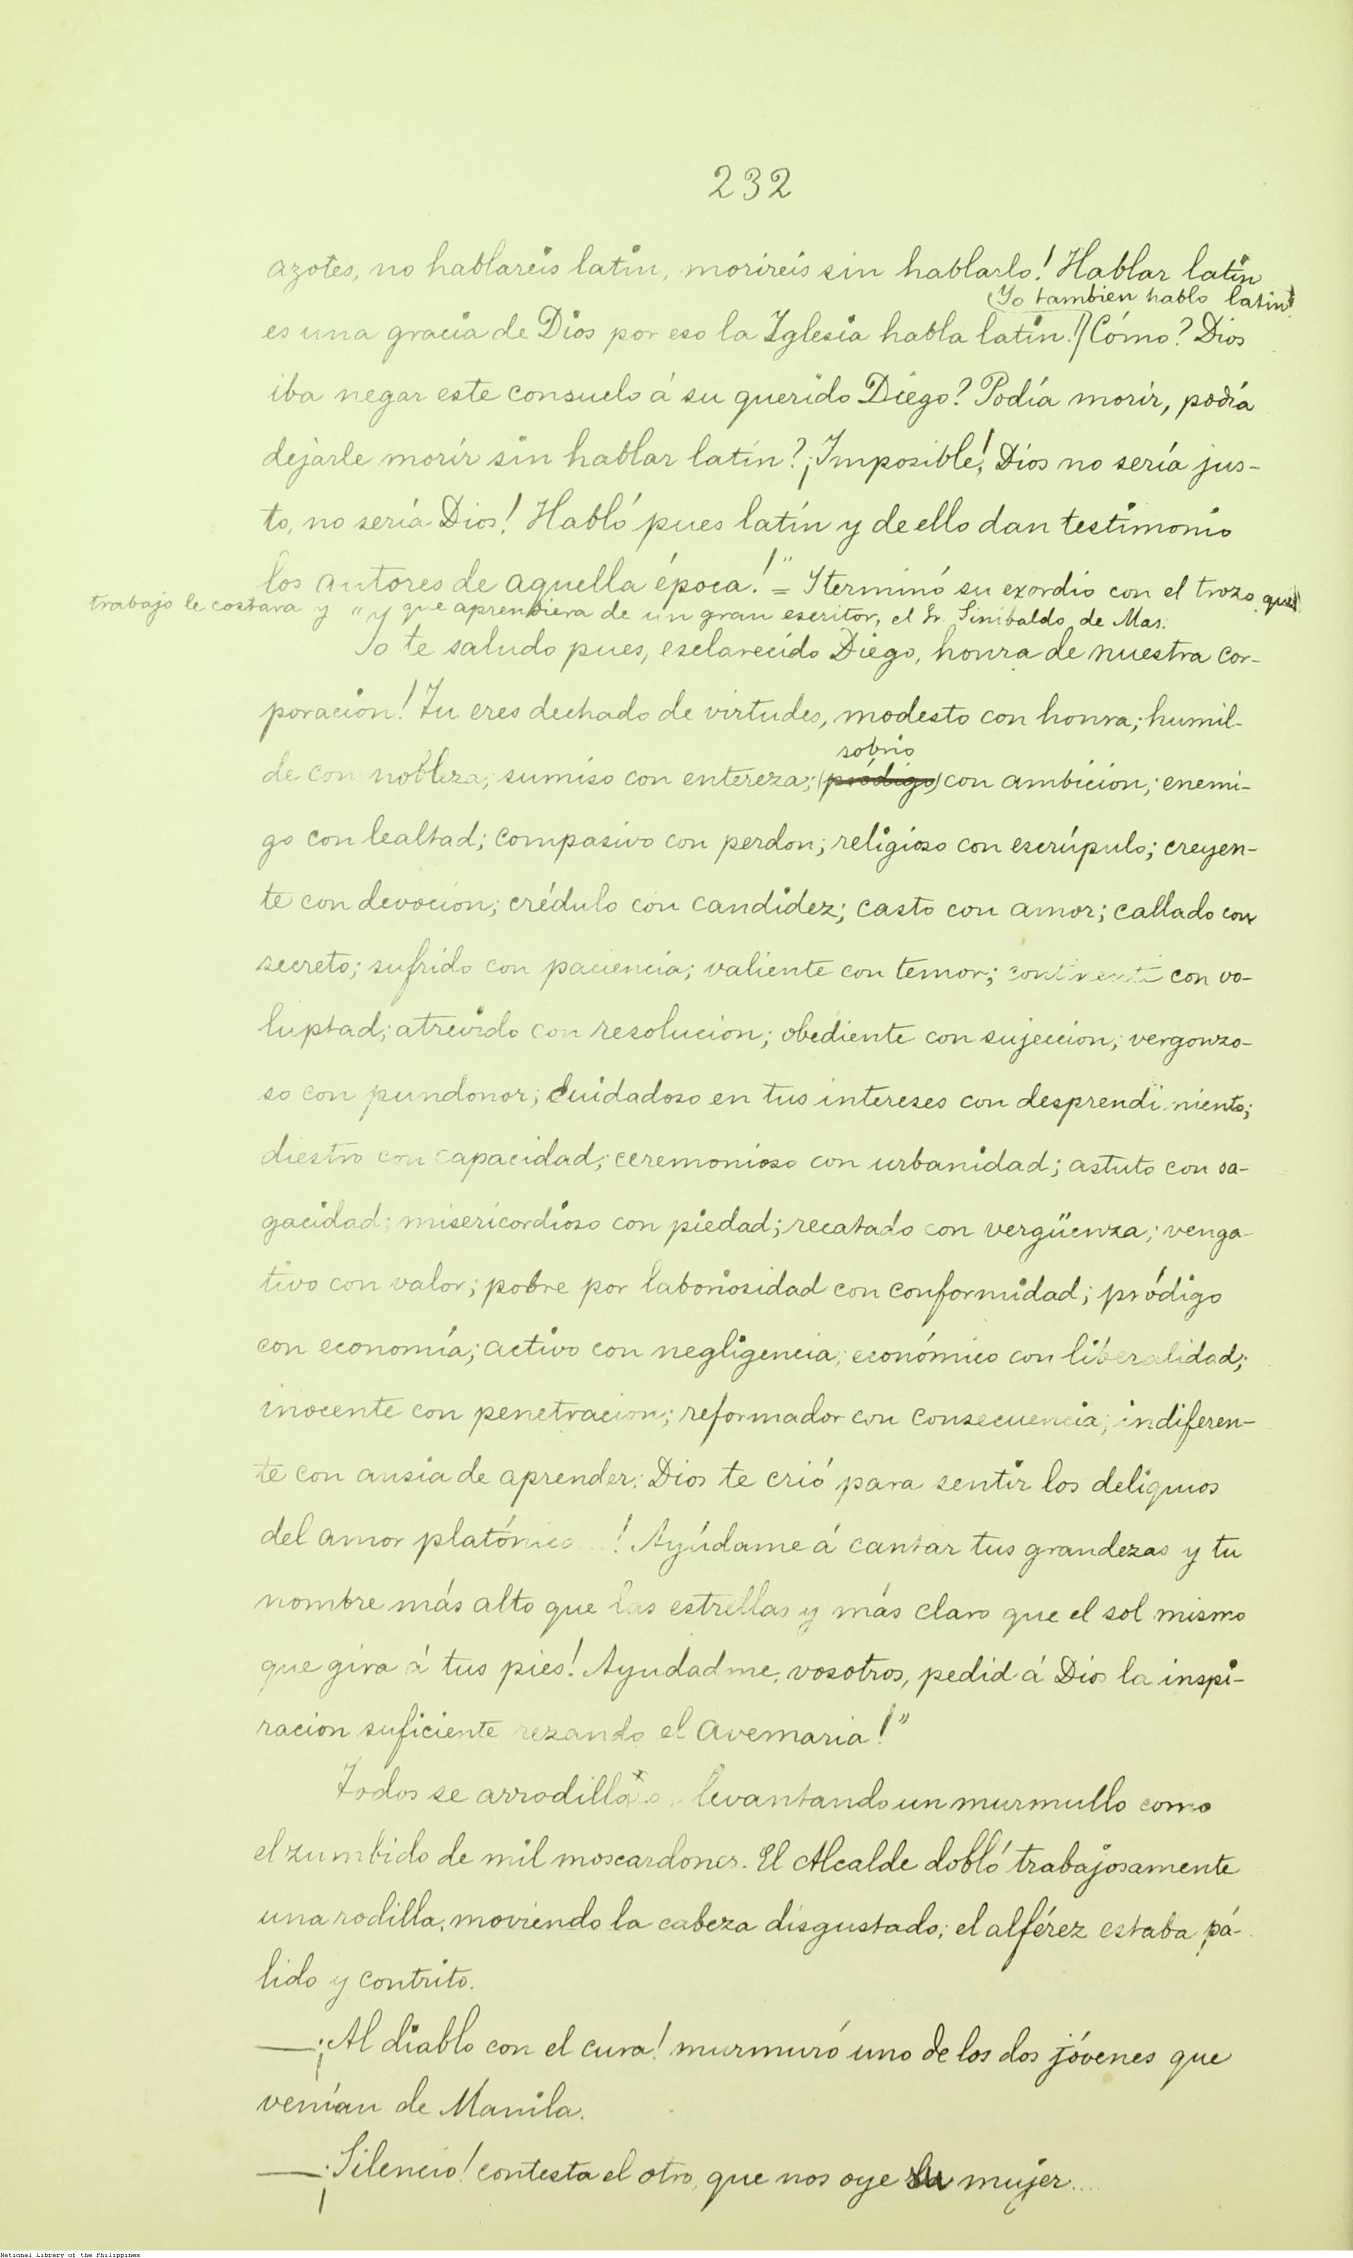 232
azotes, no hablareis latin, morireis sin hablarlo! Hablar latin
(Yo tambien hablo latin!
es una gracia de Dios por eso la Iglesia habla latin!) Cómo? Dios
iba negar este consuelo á su querido Diego? Podía morir, podía
dejarle morir sin hablar latin? ¡Imposible! Dios no sería jus-
to, no sería Dios! Habló pues latín y de ello dan testimonio
los autores de aquella época!" = Y terminó su exordio con el trozo que
trabajo le costara y " y que aprendiera de un gran escritor, el Sr. Sinibaldo de Mas.
Yo te saludo pues, esclarecido Diego, honra de nuestra cor-
poracion! Tu eres dechado de virtudes, modesto con honra; humil-
sobrio
de con nobleza; sumiso con entereza; (pródigo) con ambicion; enemi-
go con lealtad; compasivo con perdon; religioso con escrúpulo; creyen-
te con devocion; crédulo con candidez; casto con amor; callado con
secreto; sufrido con paciencia; valiente con temor; continente con vo-
luptad; atrevido con resolucion; obediente con sujeccion; vergonzo-
so con pundonor; cuidadoso en tus intereses con desprendimiento;
diestro con capacidad; ceremonioso con urbanidad; astuto con sa-
gacidad; misericordioso con piedad; recatado con vergüenza; venga-
tivo con valor; pobre por laboriosidad con conformidad; pródigo
con economía; activo con negligencia; económico con liberalidad;
inocente con penetracion; reformador con consecuencia; indiferen-
te con ansia de aprender: Dios te crió para sentir los deliquios
del amor platónico...! Ayúdame á cantar tus grandezas y tu
nombre más alto que las estrellas y más claro que el sol mismo
que gira á tus pies! Ayudadme, vosotros, pedid á Dios la inspi-
racion suficiente rezando el Avemaria!"
Todos se levantando un murmullo como
el zumbido de mil moscardones. El Alcalde dobló trabajosamente
una rodilla, moviendo la cabeza disgustado; el alférez estaba pá-
lido y contrito.
—¡Al diablo con el cura! murmuró uno de los dos jóvenes que
venían de Manila.
—¡Silencio! contesta el otro, que nos oye su mujer....
National Library of the Philippines